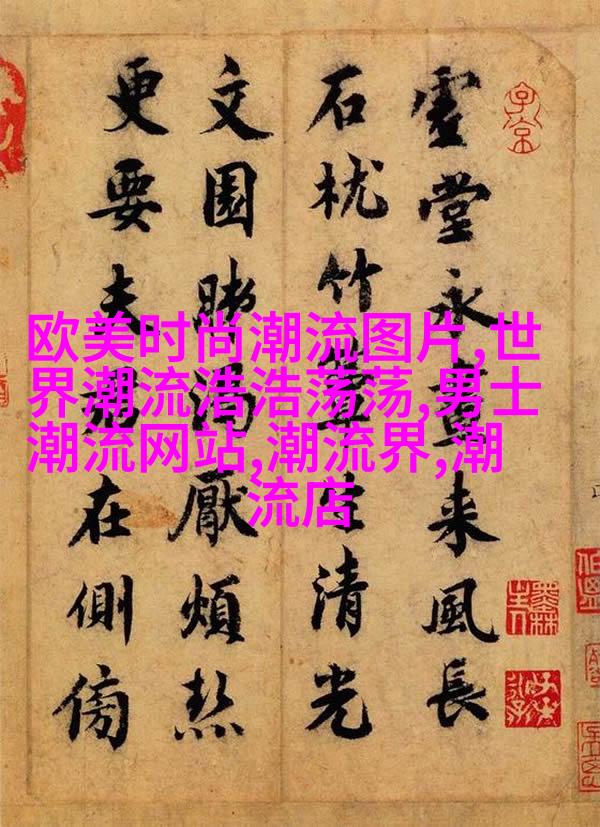 虛堂永晝来風長
石枕竹簟生清光
文園肺渴厭煩熱
更要夫君在側傍
欧美时尚潮流图片,世
界潮流浩浩荡荡,男士
潮流网站,潮流界,潮
流店